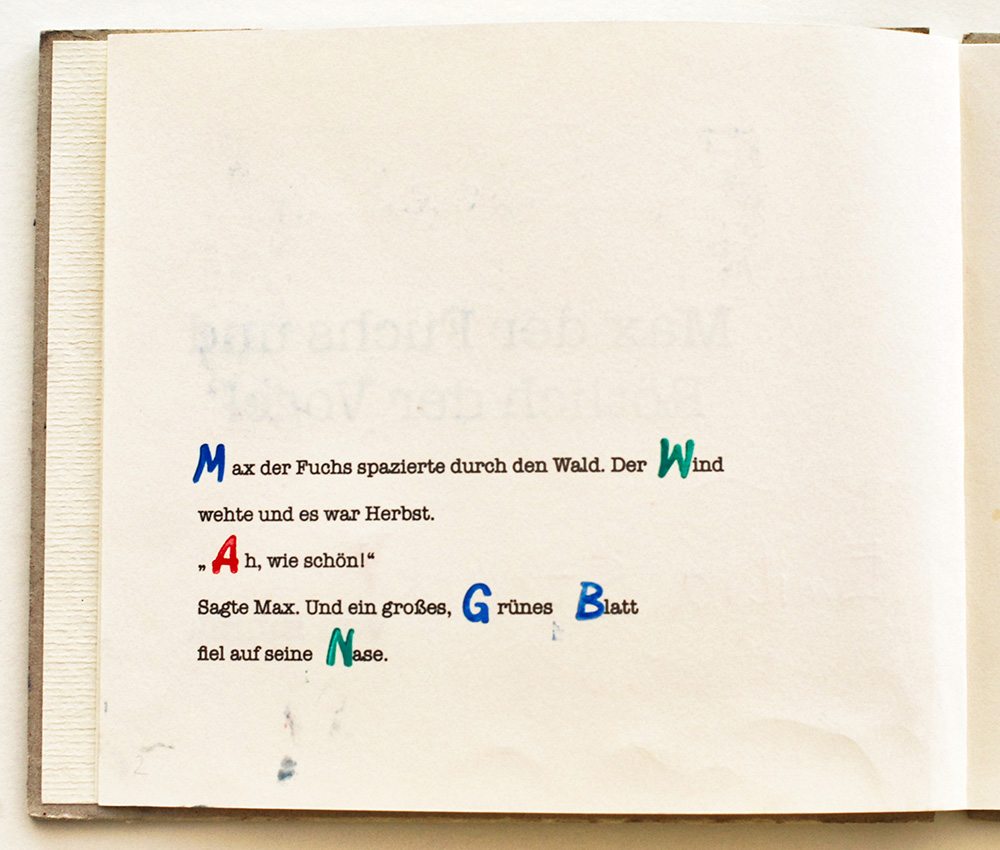 Max der Fuchs spazierte durch den Wald. Der Wind
wehte und es war Herbst.
„Ah, wie schön!“
Sagte Max. Und ein großes, Grünes Blatt
fiel auf seine Nase.
2